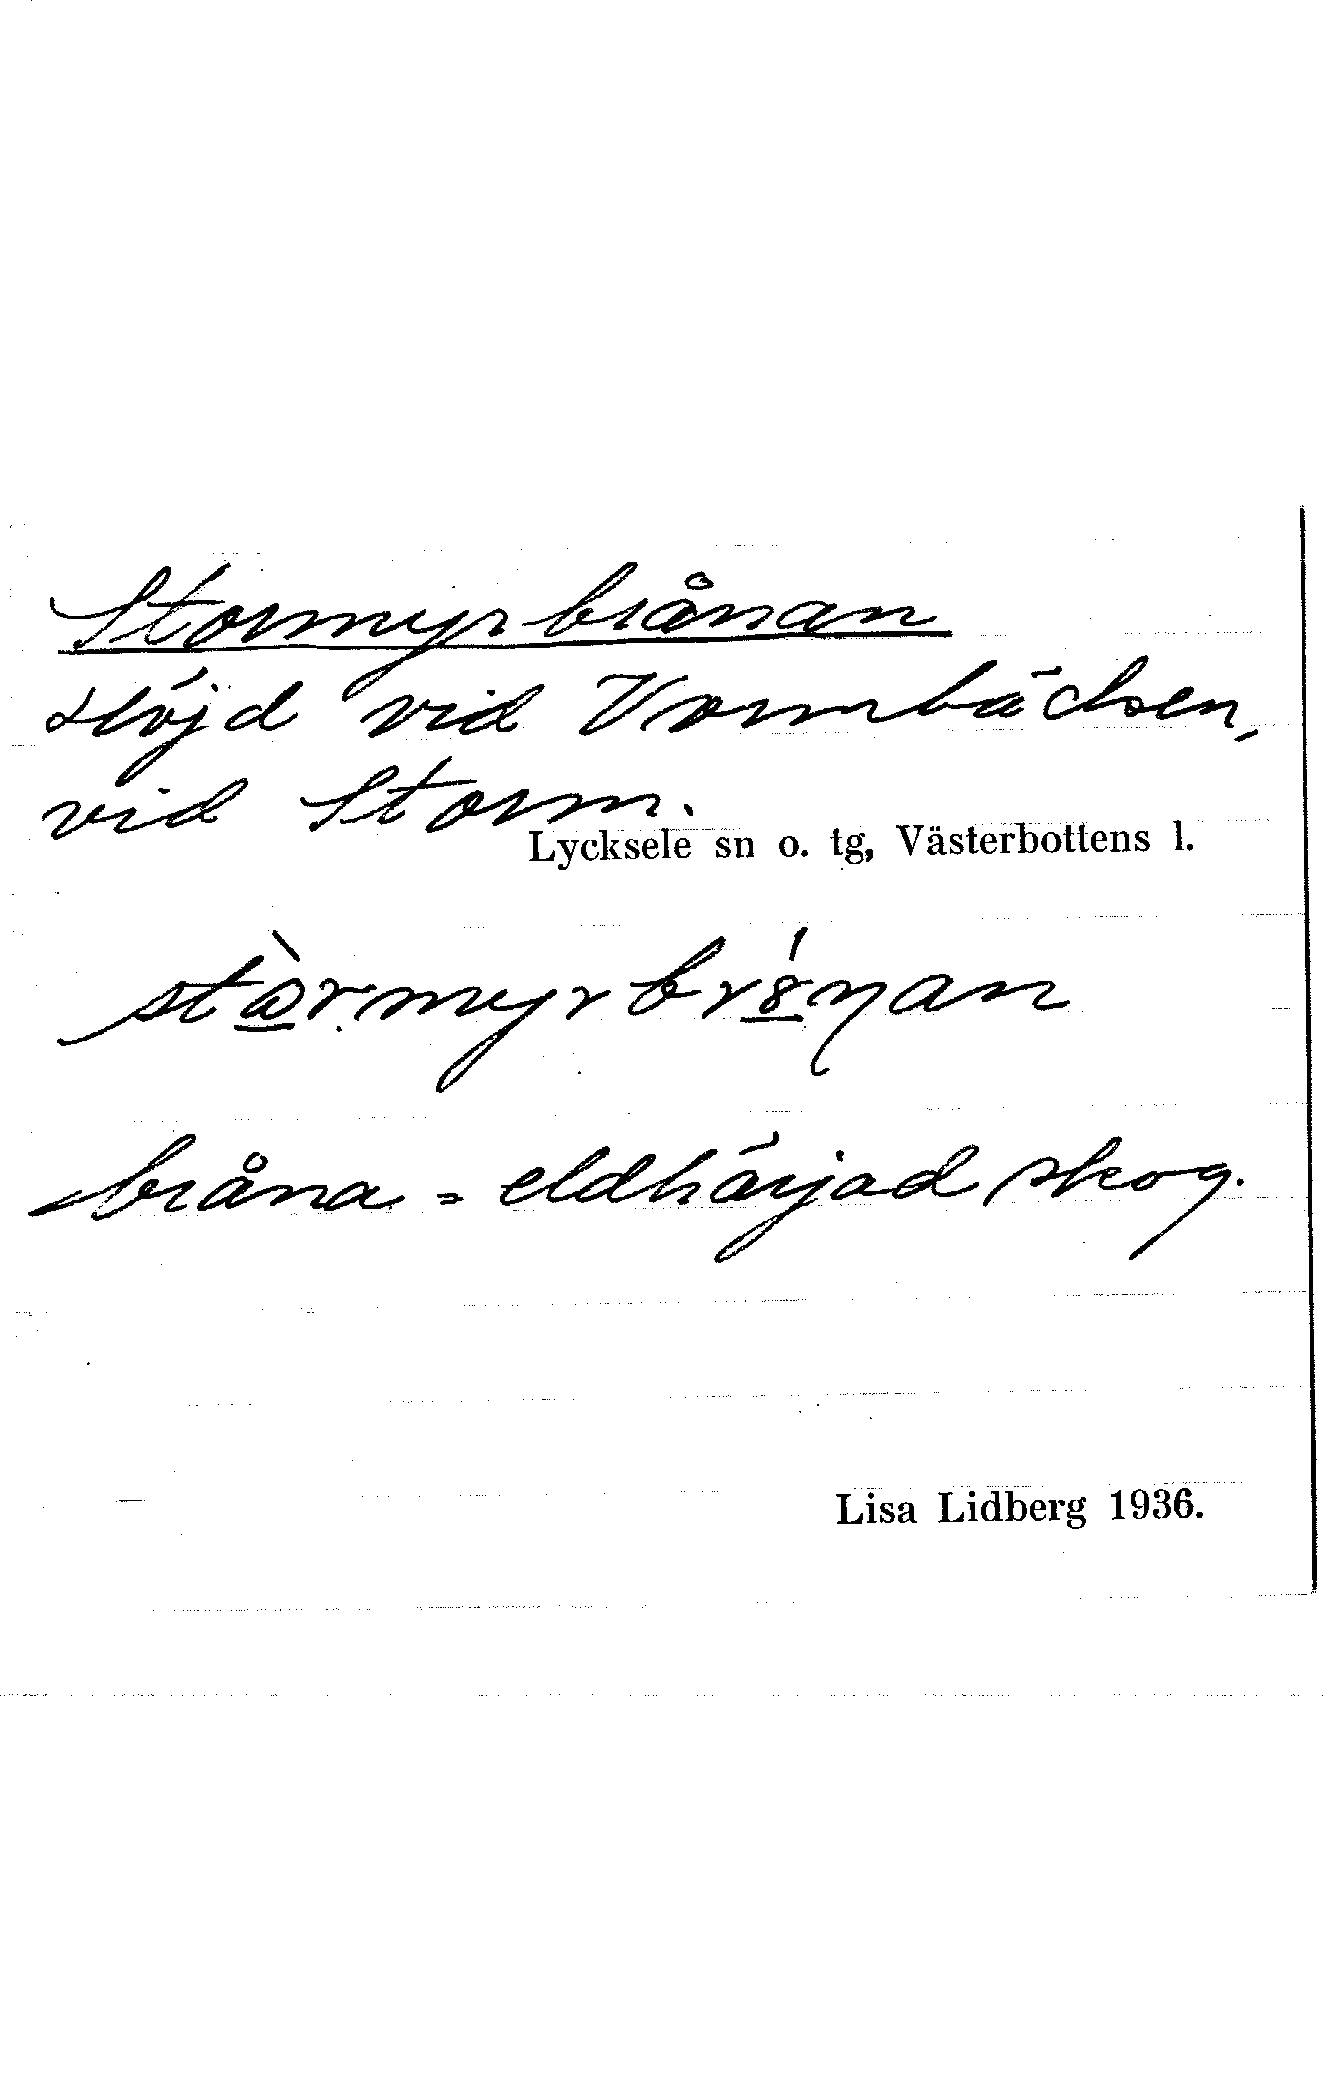 Stormyrbrånan
slöjd vid Vormbäcksen,
vid Storm.
Lycksele sn o. tg, Västerbottens l.
stò̲rmyrbr
bråna = eldhärjad skog.
Lisa Lidberg 1936.